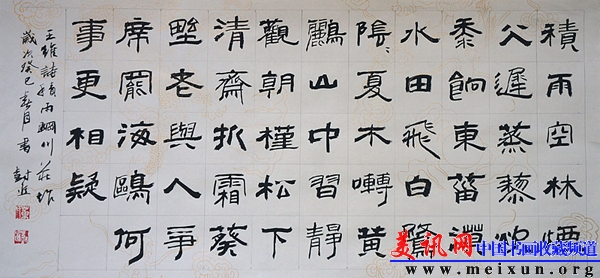 積雨空林煙
火遲蒸藜炊
黍餉東菑漠〻
水田飛白鷺
陰〻夏木囀黃
鸝山中習靜
觀朝槿松下
清齋折霜葵
野老與人爭
席罷海鷗何
事更相疑
王維詩積雨輞川莊作
歲次癸巳春月書
美讯网 中国书画收藏频道
www.meixun.org